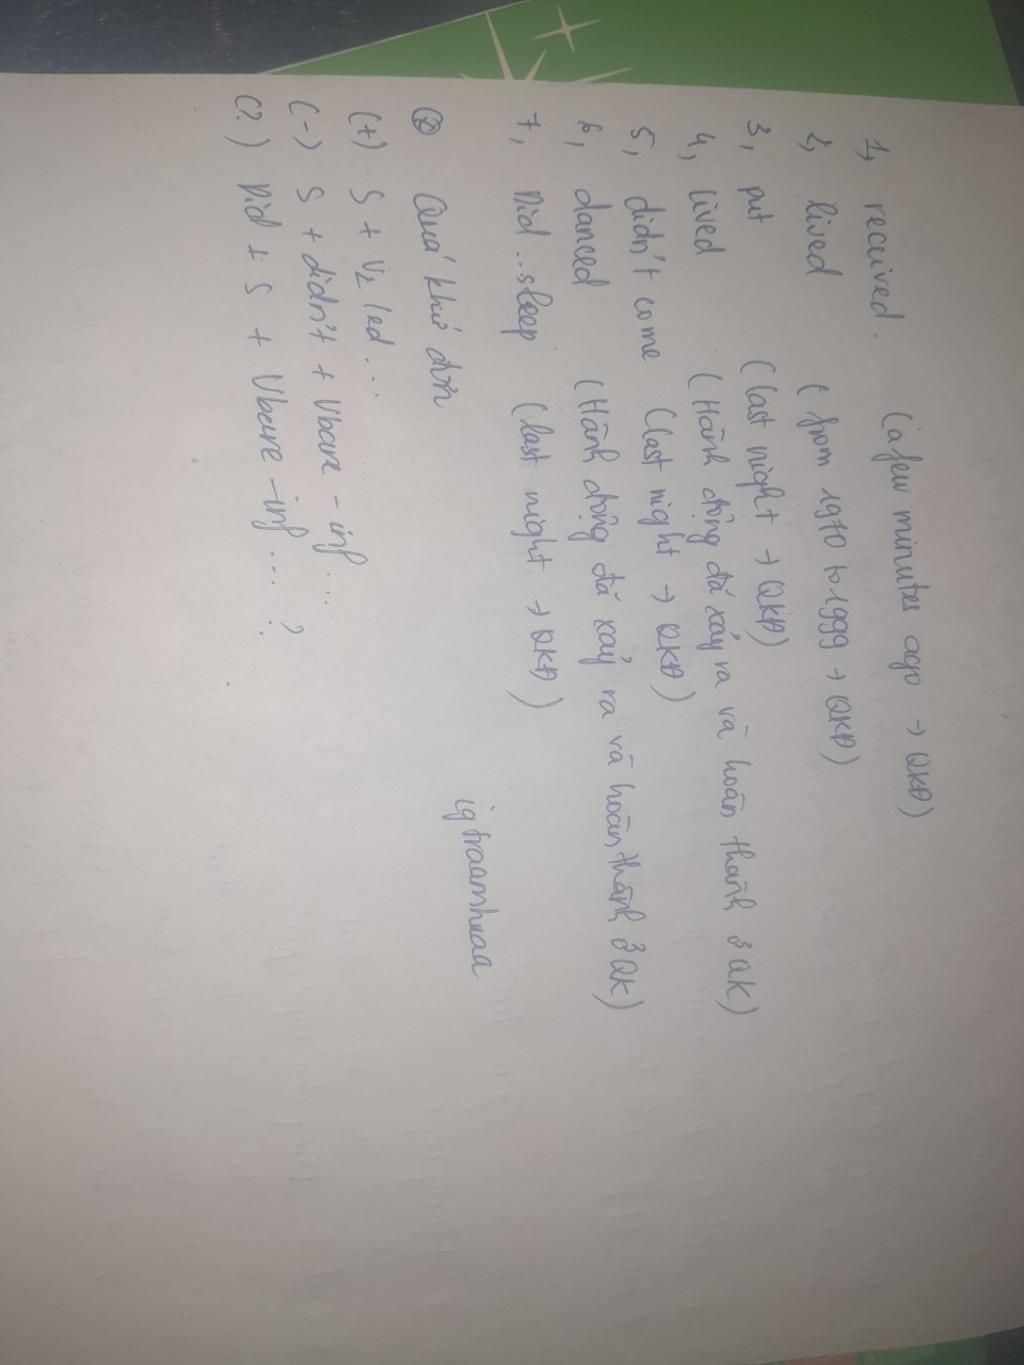 1, received. (a few minutes ago → QKĐ)
2, lived ( from 1970 to 1999 → QKĐ)
3, put (last night → QKĐ)
4, lived (Hành động đã xảy ra và hoàn thành ở QK)
5, didn't come (last night → QKĐ)
6, danced (Hành động đã xảy ra và hoàn thành ở QK)
7, Did ... sleep (last night → QKĐ)
* Quá khứ đơn
(+) S + V2/ed ...
(-) S + didn't + Vbare - inf ...
(?) Did + S + Vbare - inf ... ?
igtraamhnaa